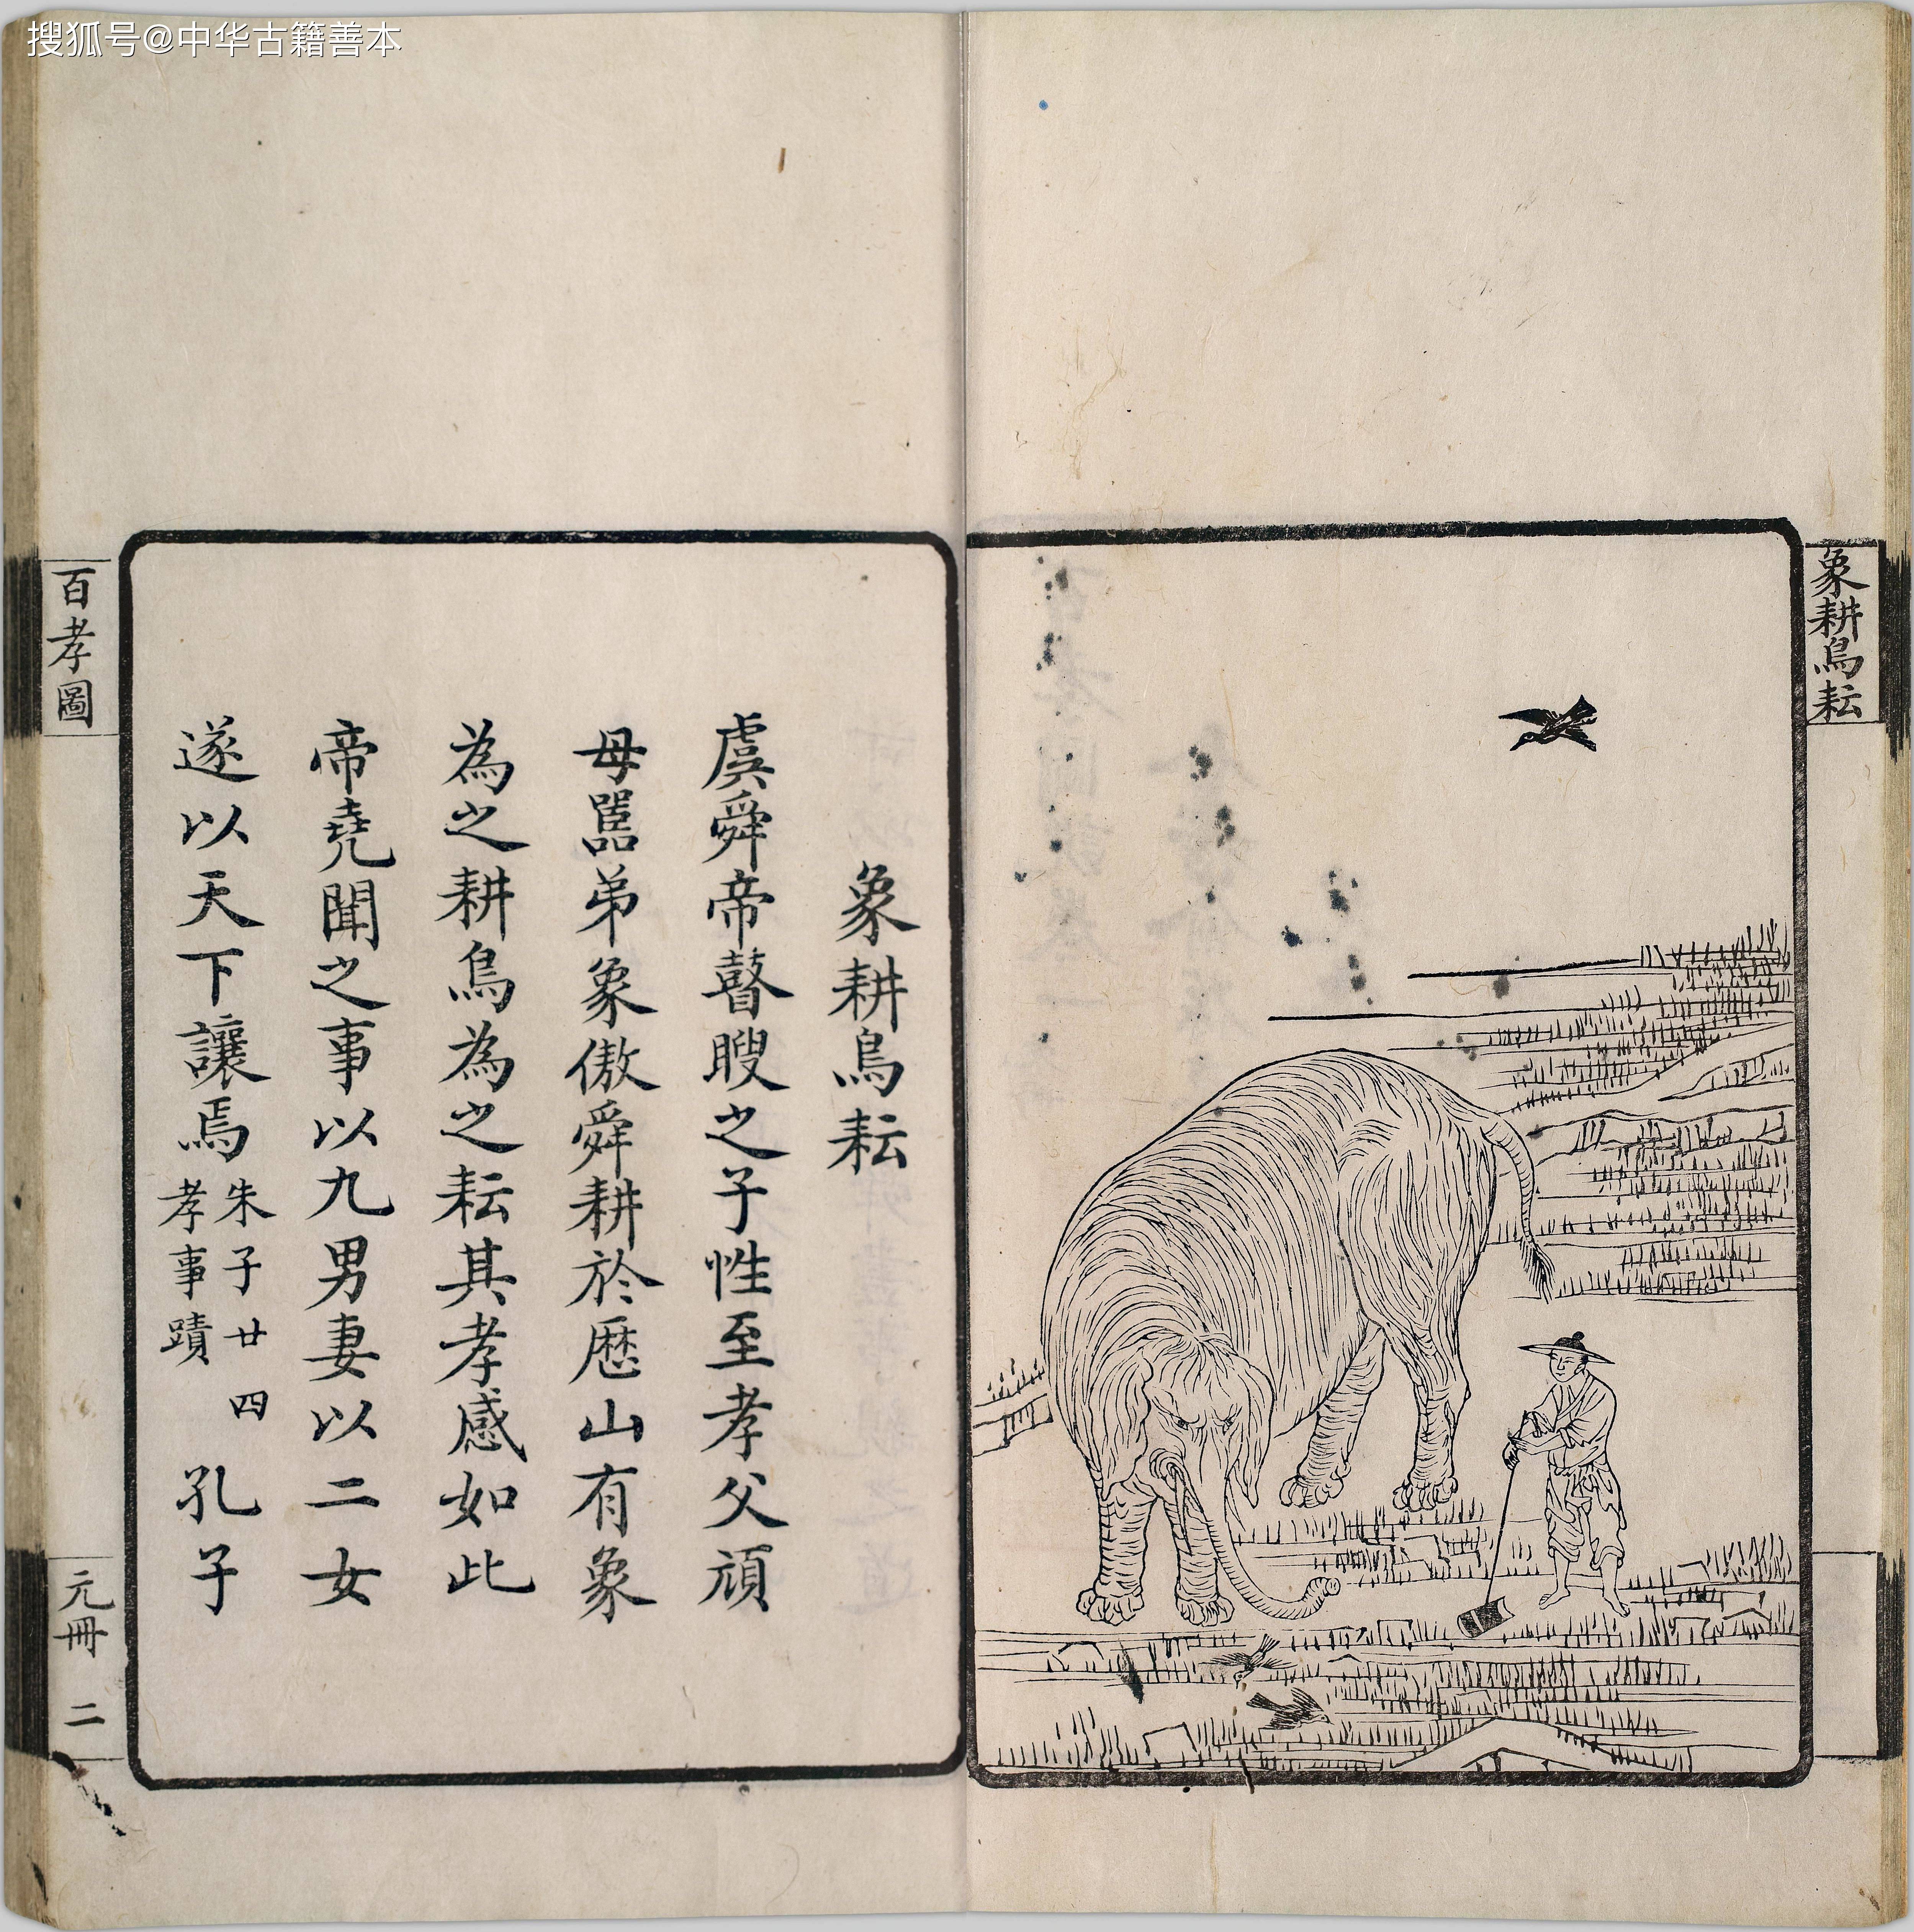 搜狐号@中华古籍善本
象耕鳥耘
象耕鳥耘
虞舜帝瞽瞍之子性至孝父頑
母嚚弟象傲舜耕於歷山有象
為之耕鳥為之耘其孝感如此
帝堯聞之事以九男妻以二女
遂以天下讓焉
朱子廿四
孝事蹟
孔子
百孝圖
元冊 二